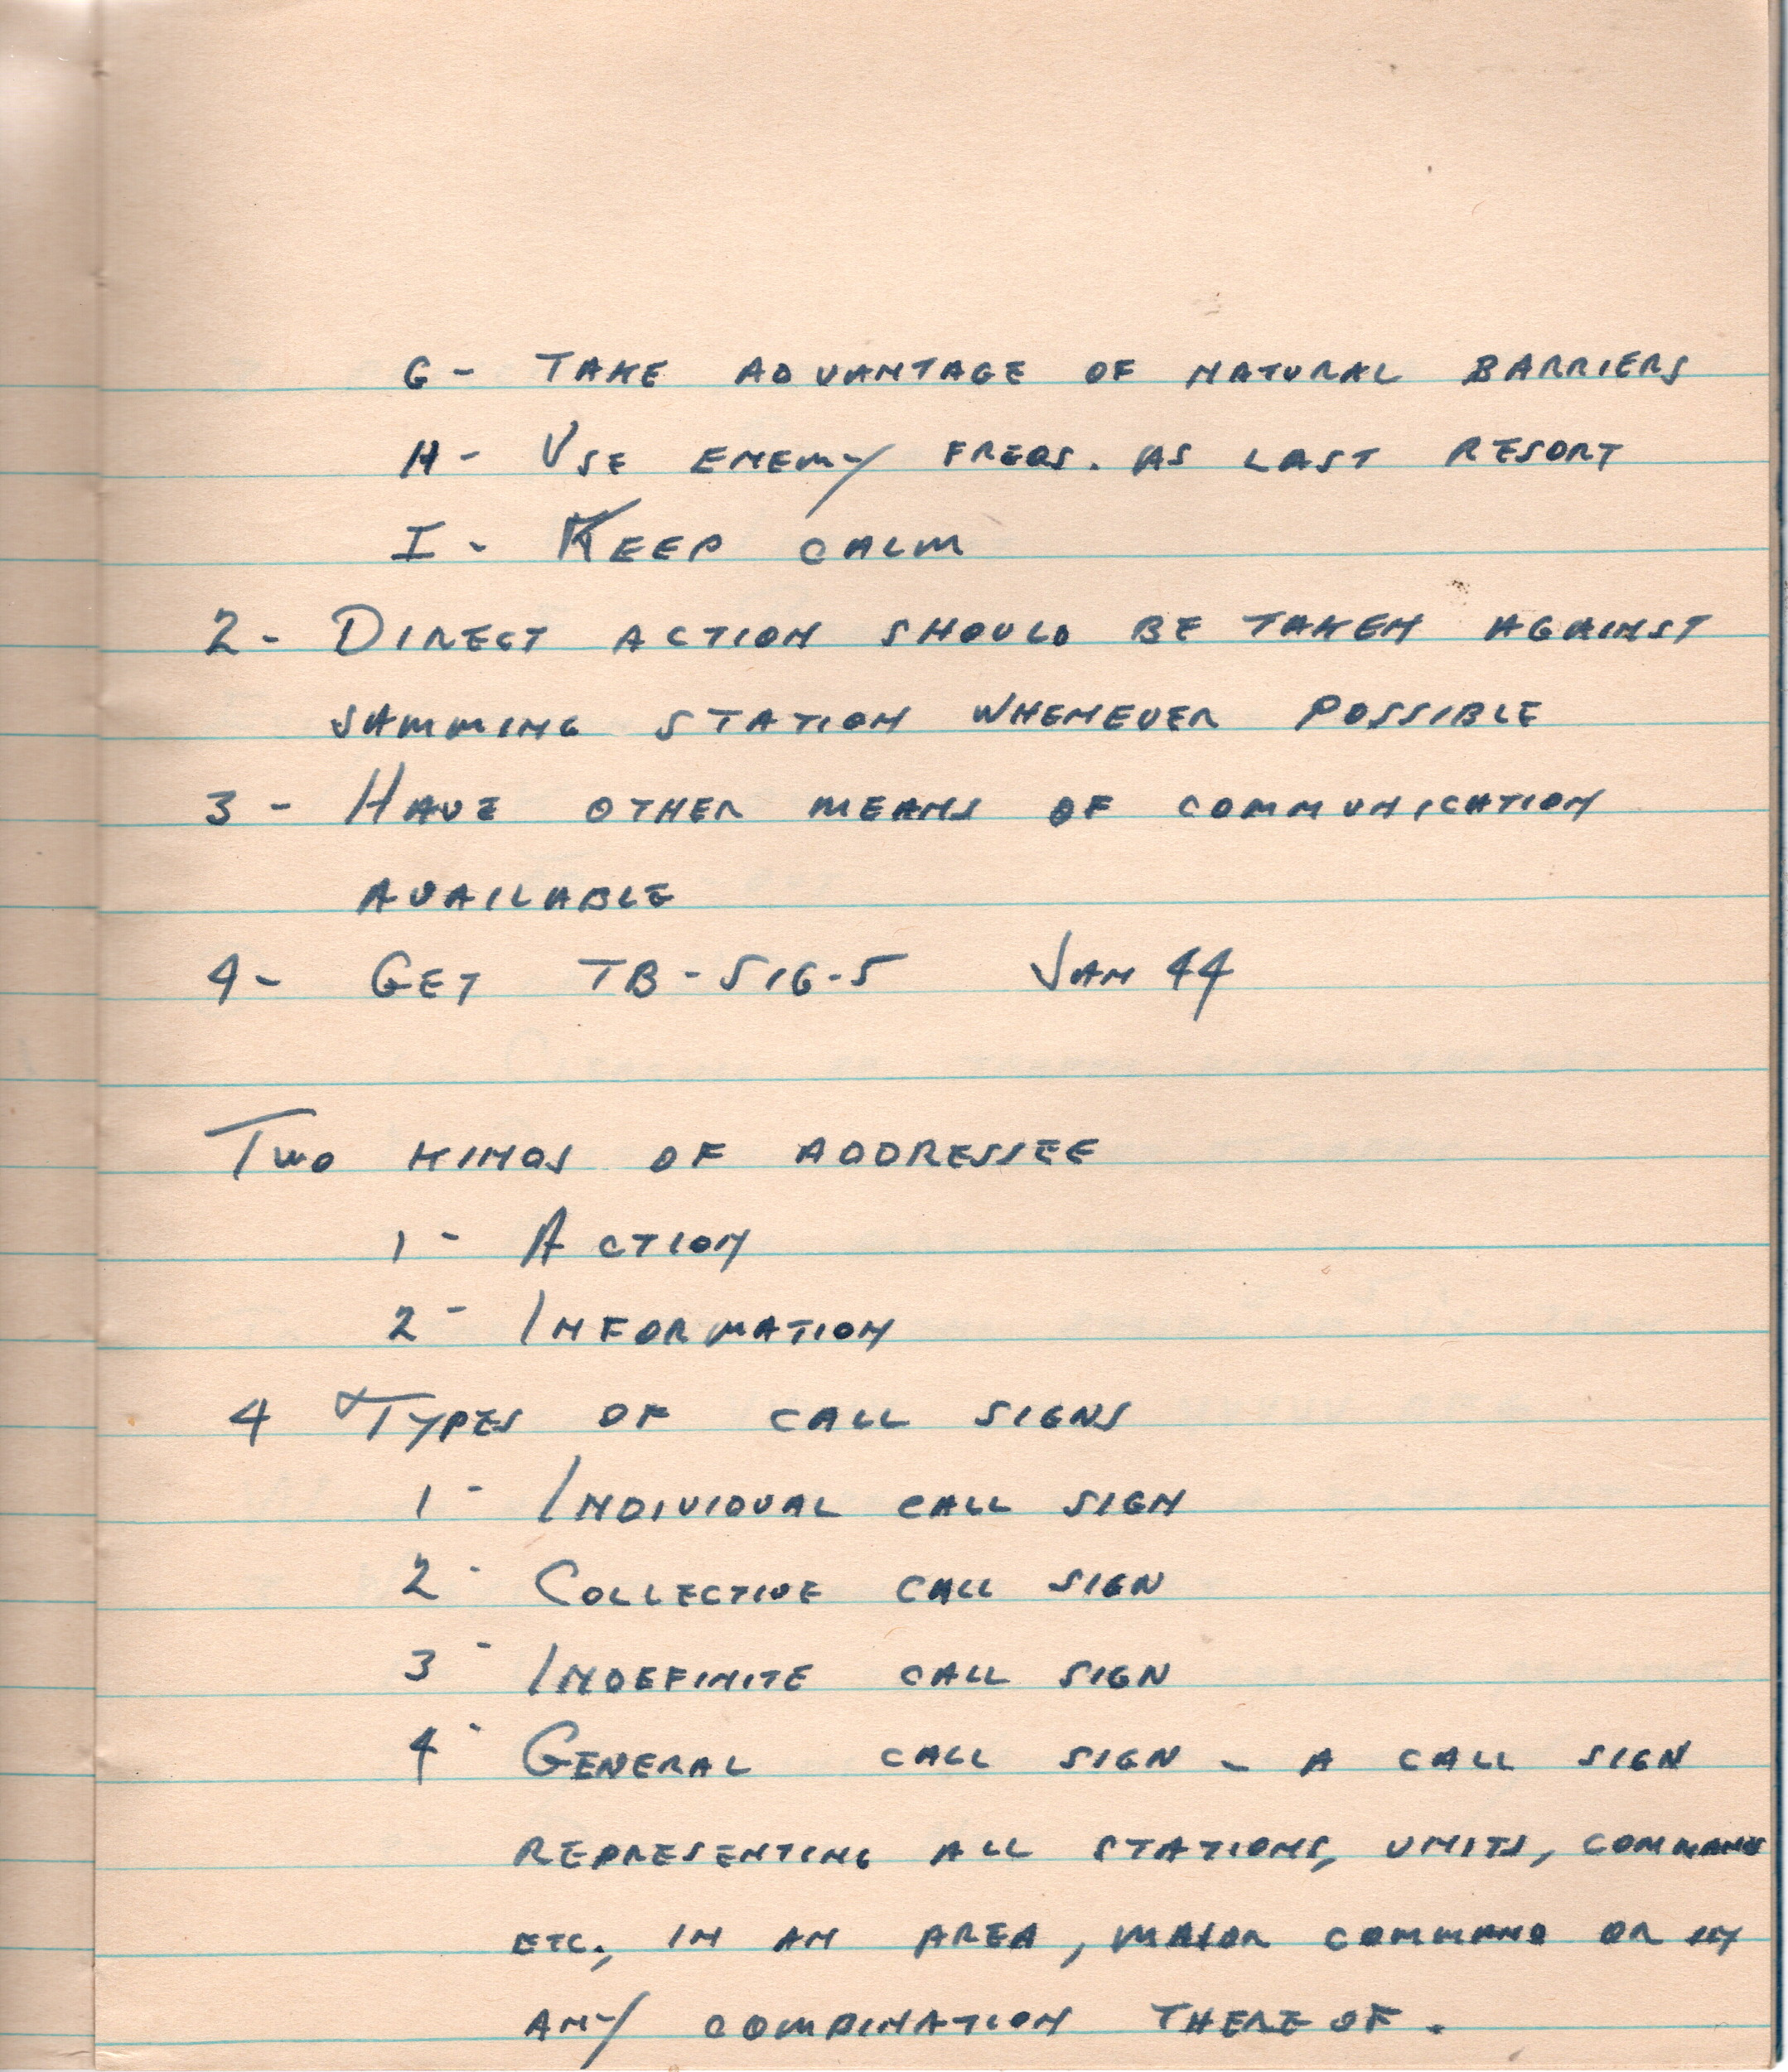 G - TAKE ADVANTAGE OF NATURAL BARRIERS
H - USE ENEMY FREQS. AS LAST RESORT
I - KEEP CALM
2 - DIRECT ACTION SHOULD BE TAKEN AGAINST
JAMMING STATION WHENEVER POSSIBLE
3 - HAVE OTHER MEANS OF COMMUNICATION
AVAILABLE
4 - GET TB-SIG-5 JAN 44
TWO KINDS OF ADDRESSEE
1 - ACTION
2 - INFORMATION
4 TYPES OF CALL SIGNS
1 - INDIVIDUAL CALL SIGN
2 - COLLECTIVE CALL SIGN
3 - INDEFINITE CALL SIGN
4 - GENERAL CALL SIGN - A CALL SIGN
REPRESENTING ALL STATIONS, UNITS, COMMANDS
ETC., IN AN AREA, MAJOR COMMAND OR IN
ANY COMBINATION THERE OF.